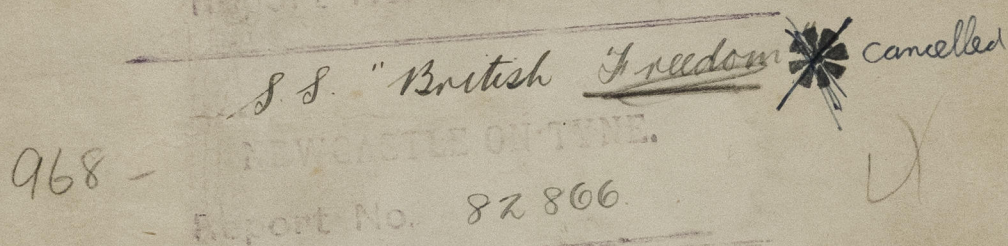 S.S. "British Freedom" cancelled
NEWCASTLE ON-TYNE.
968 -
Report No. 82866